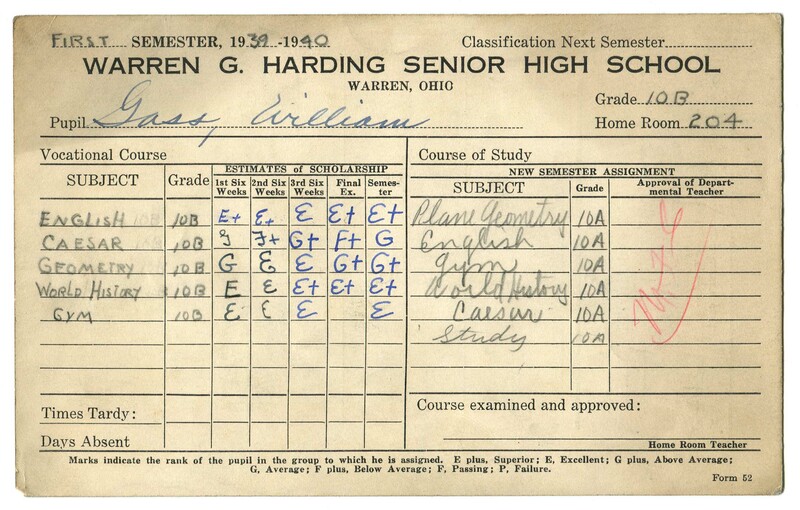 FIRST SEMESTER, 1939-1940 Classification Next Semester
WARREN G. HARDING SENIOR HIGH SCHOOL
WARREN, OHIO
Grade 10B
Pupil Gass, William Home Room 204
Vocational Course Course of Study
ESTIMATES OF SCHOLARSHIP NEW SEMESTER ASSIGNMENT
SUBJECT Grade 1st Six Weeks 2nd Six Weeks 3rd Six Weeks Final Ex. Semester SUBJECT Grade Approval of Departmental Teacher
ENGLISH 10B E+ E+ E E+ E+ Plane Geometry 10A
CAESAR 10B G F+ G+ F+ G English 10A
GEOMETRY 10B G E E G+ G+ Gym 10A
WORLD HISTORY 10B E E E+ E+ E+ World History 10A
GYM 10B E E E E Caesar 10A
Study 10A
Times Tardy: Course examined and approved:
Days Absent Home Room Teacher
Marks indicate the rank of the pupil in the group to which he is assigned. E plus, Superior; E, Excellent; G plus, Above Average;
G, Average; F plus, Below Average; F, Passing; P, Failure.
Form 52